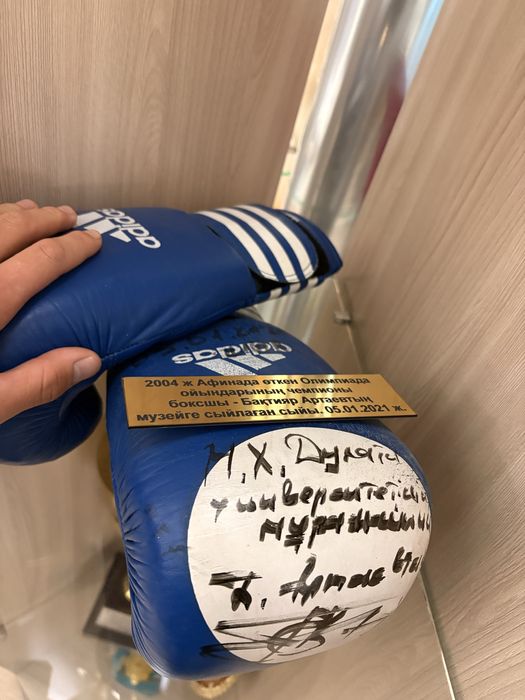 adidas
adidas
2004 ж Афинада өткен Олимпиада
ойындарының чемпионы
боксшы - Бақтияр Артаевтың
музейге сыйлаған сыйы. 05.01.2021 ж.
М.Х. Дулати
университетінің
Б. Артаевтан